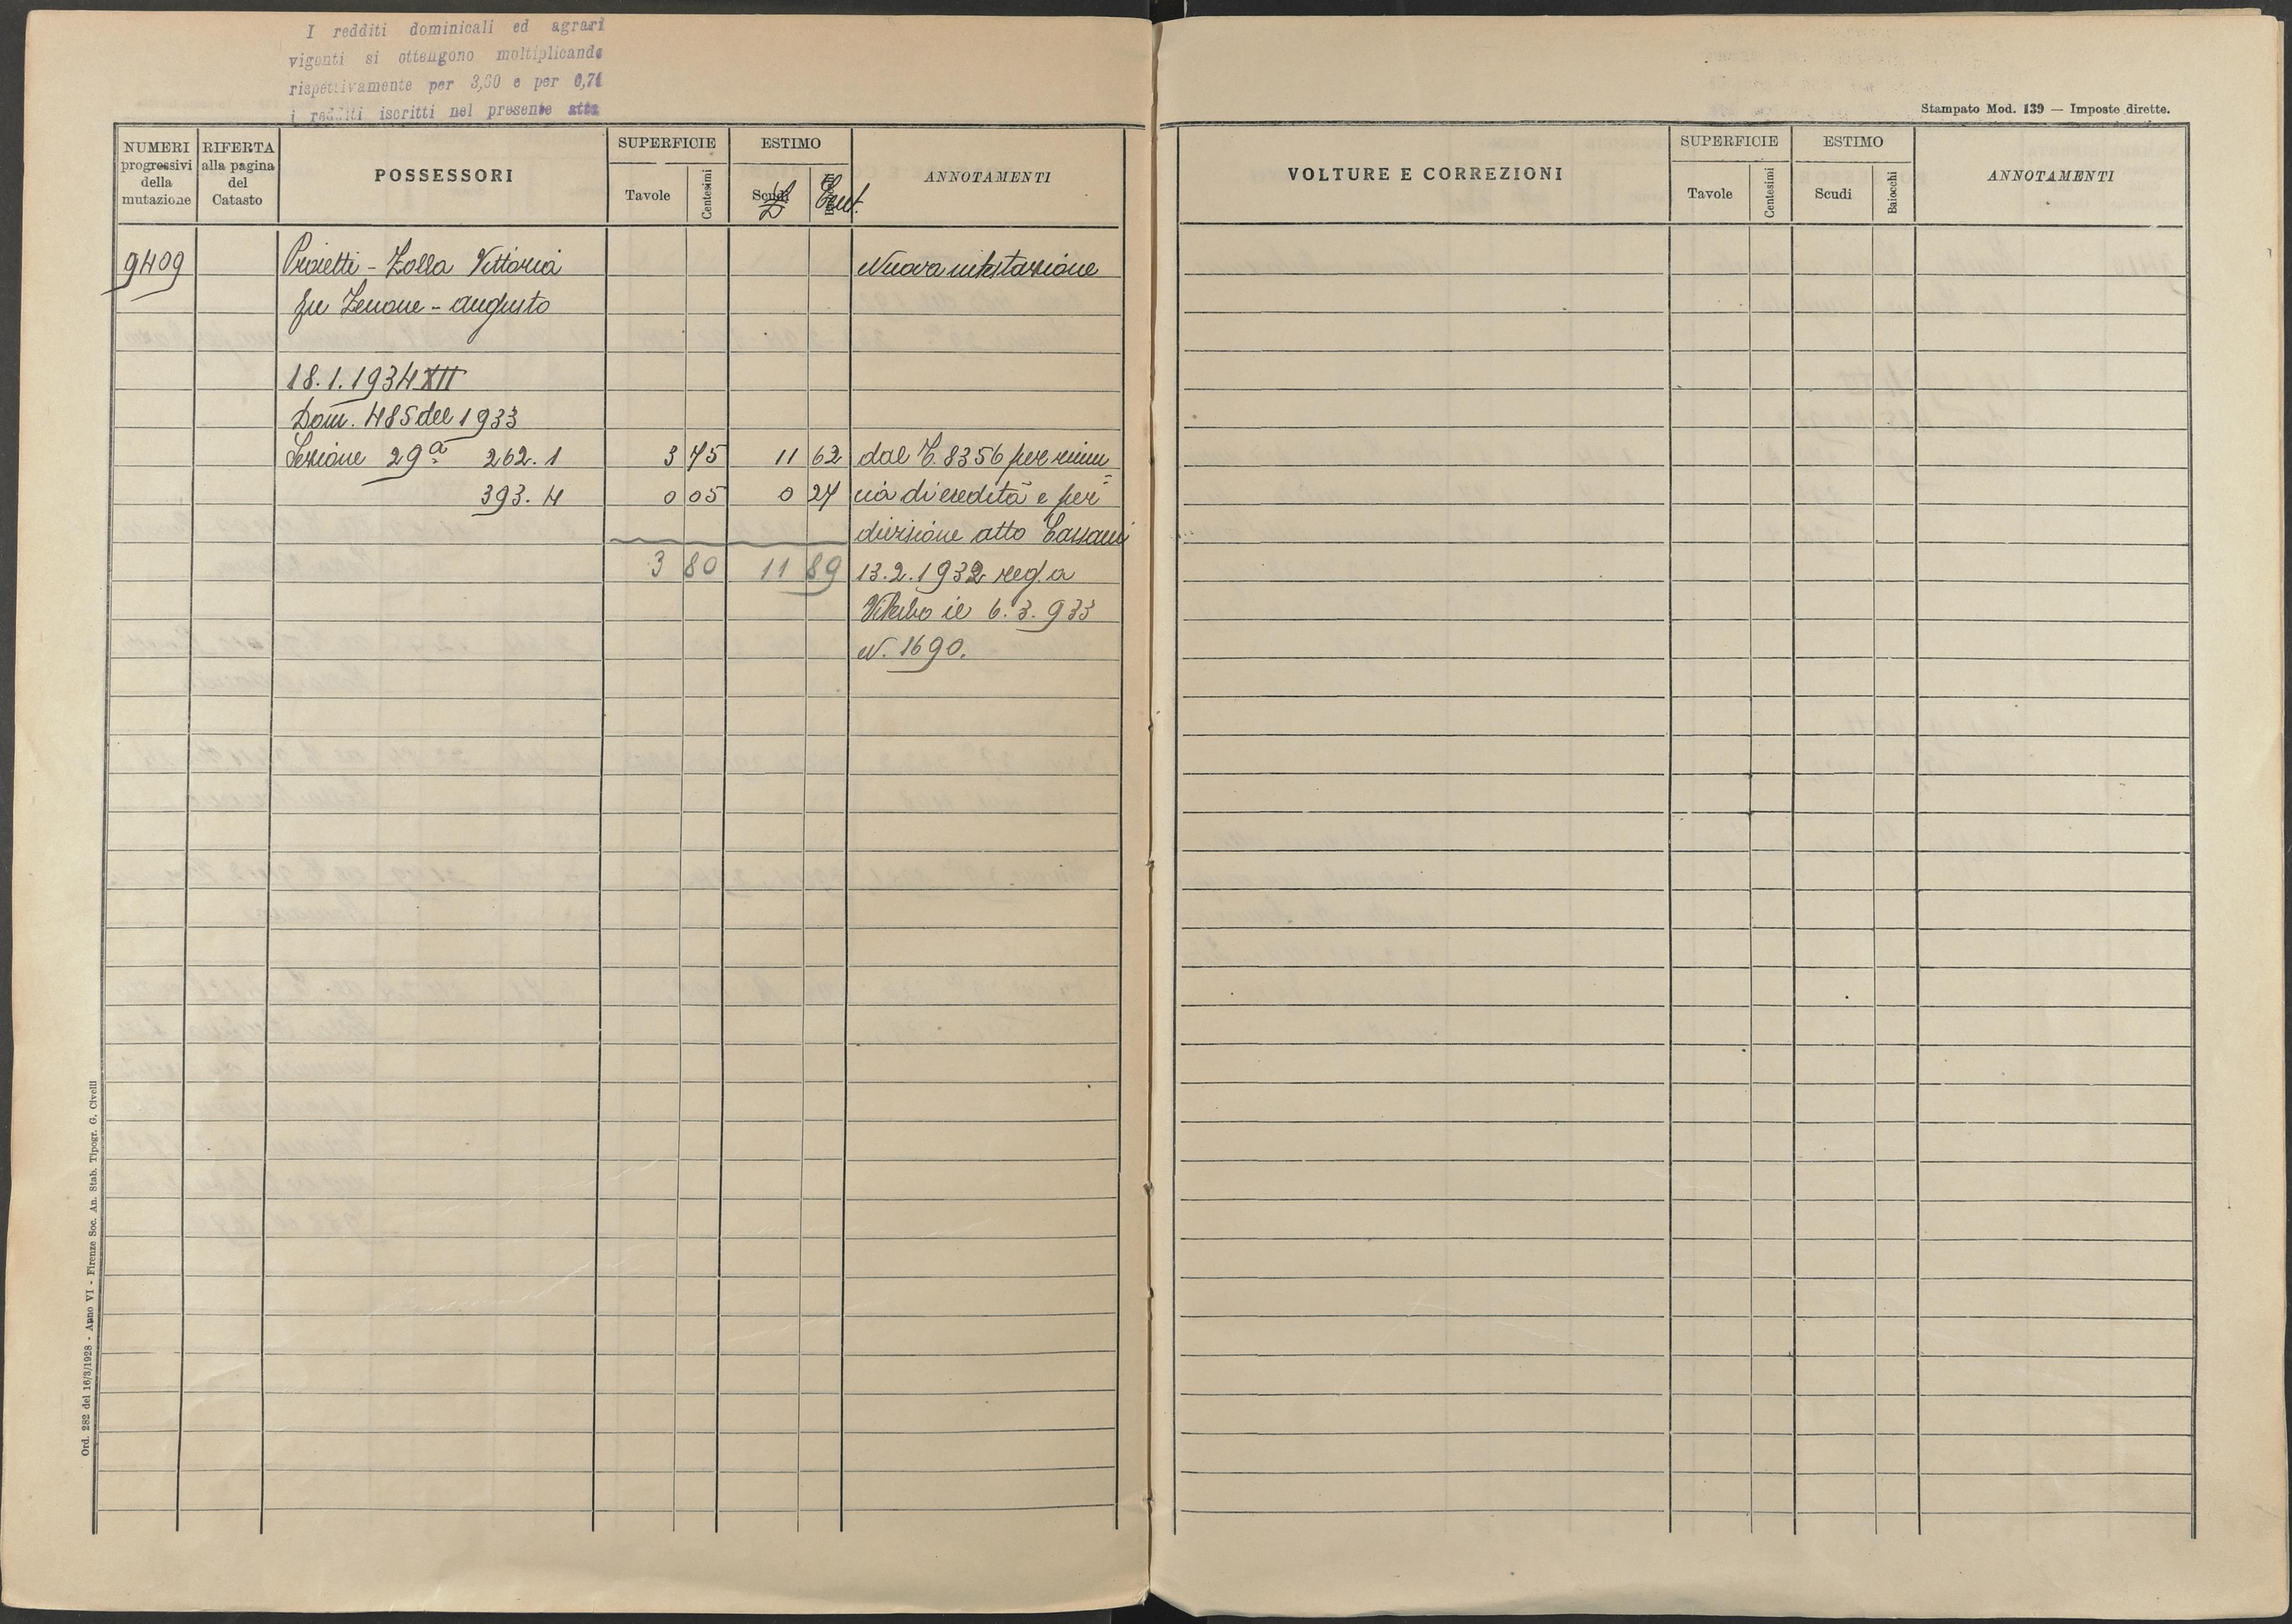 I redditi dominicali ed agrari
vigenti si ottengono moltiplicando
rispettivamente per 3,60 e per 0,71
i redditi iscritti nel presente atto
Stampato Mod. 139 — Imposte dirette.
NUMERI progressivi della mutazione
RIFERTA alla pagina del Catasto
POSSESSORI
SUPERFICIE
Tavole Centesimi
ESTIMO
Scudi £ Baiocchi Cent.
ANNOTAMENTI
VOLTURE E CORREZIONI
SUPERFICIE
Tavole Centesimi
ESTIMO
Scudi Baiocchi
ANNOTAMENTI
9409 Proietti - Zolla Vittoria Nuova intestazione
fu Zenone - Augusto
18.1.1934 XII
Dom. 485 del 1933
Sezione 29ª 262.1 3 75 11 62 dal T. 8356 per rinun=
393.4 0 05 0 27 cia di eredità e per
divisione atto Cassani
3 80 11 89 13.2.1932 reg. a
Viterbo il 6.3.933
N. 1690.
Ord. 282 del 16/3/1928 - Anno VI - Firenze Soc. An. Stab. Tipogr. G. Civelli